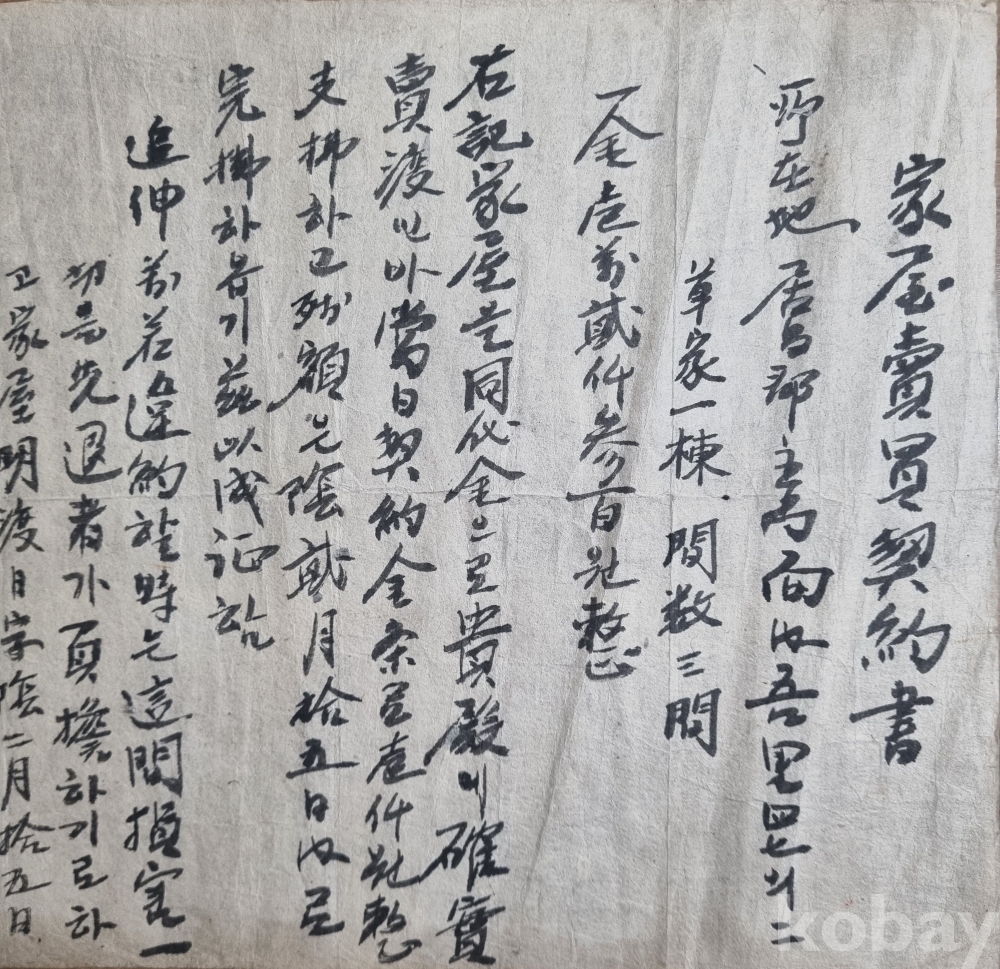 家屋賣買契約書
所在地 居昌郡主尙面内吾里四七의二
草家一棟、間数三間
一金壱万貳仟参百원整
右記家屋을同代金으로貴殿에確實
賣渡인바當日契約金条로壱仟원整
支拂하고殘額은陰貳月拾五日内로
完拂하음기玆以成证함
追伸 万若違約할時는這間損害一
切을先退者가負擔하기로하
고家屋明渡日字陰二月拾五日
kobay